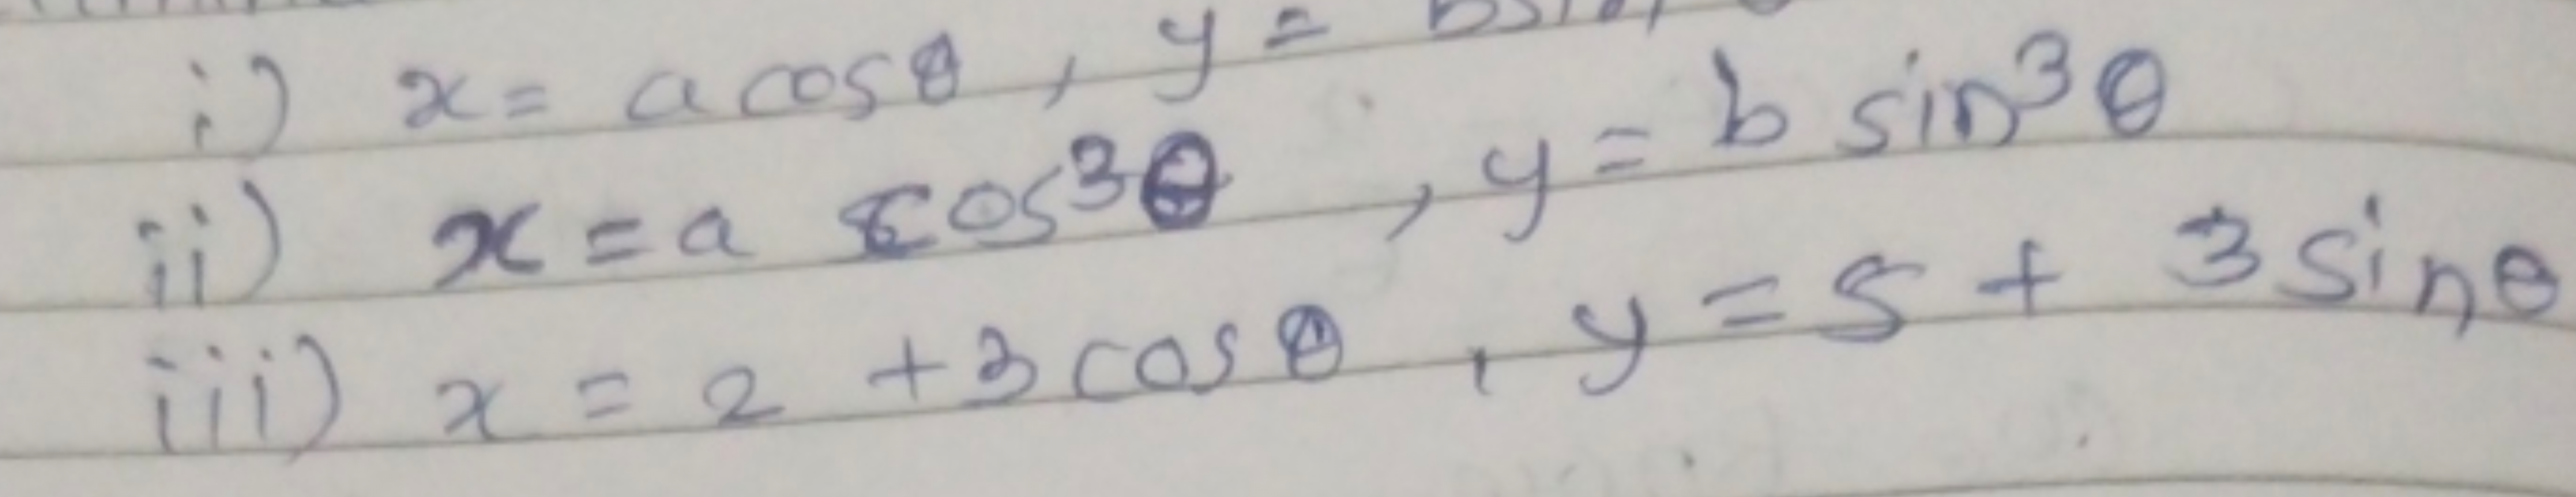 i) x = a cosθ , y =
ii) x = a cos³θ , y = b sin³θ
iii) x = 2 + 3 cosθ , y = 5 + 3 sinθ